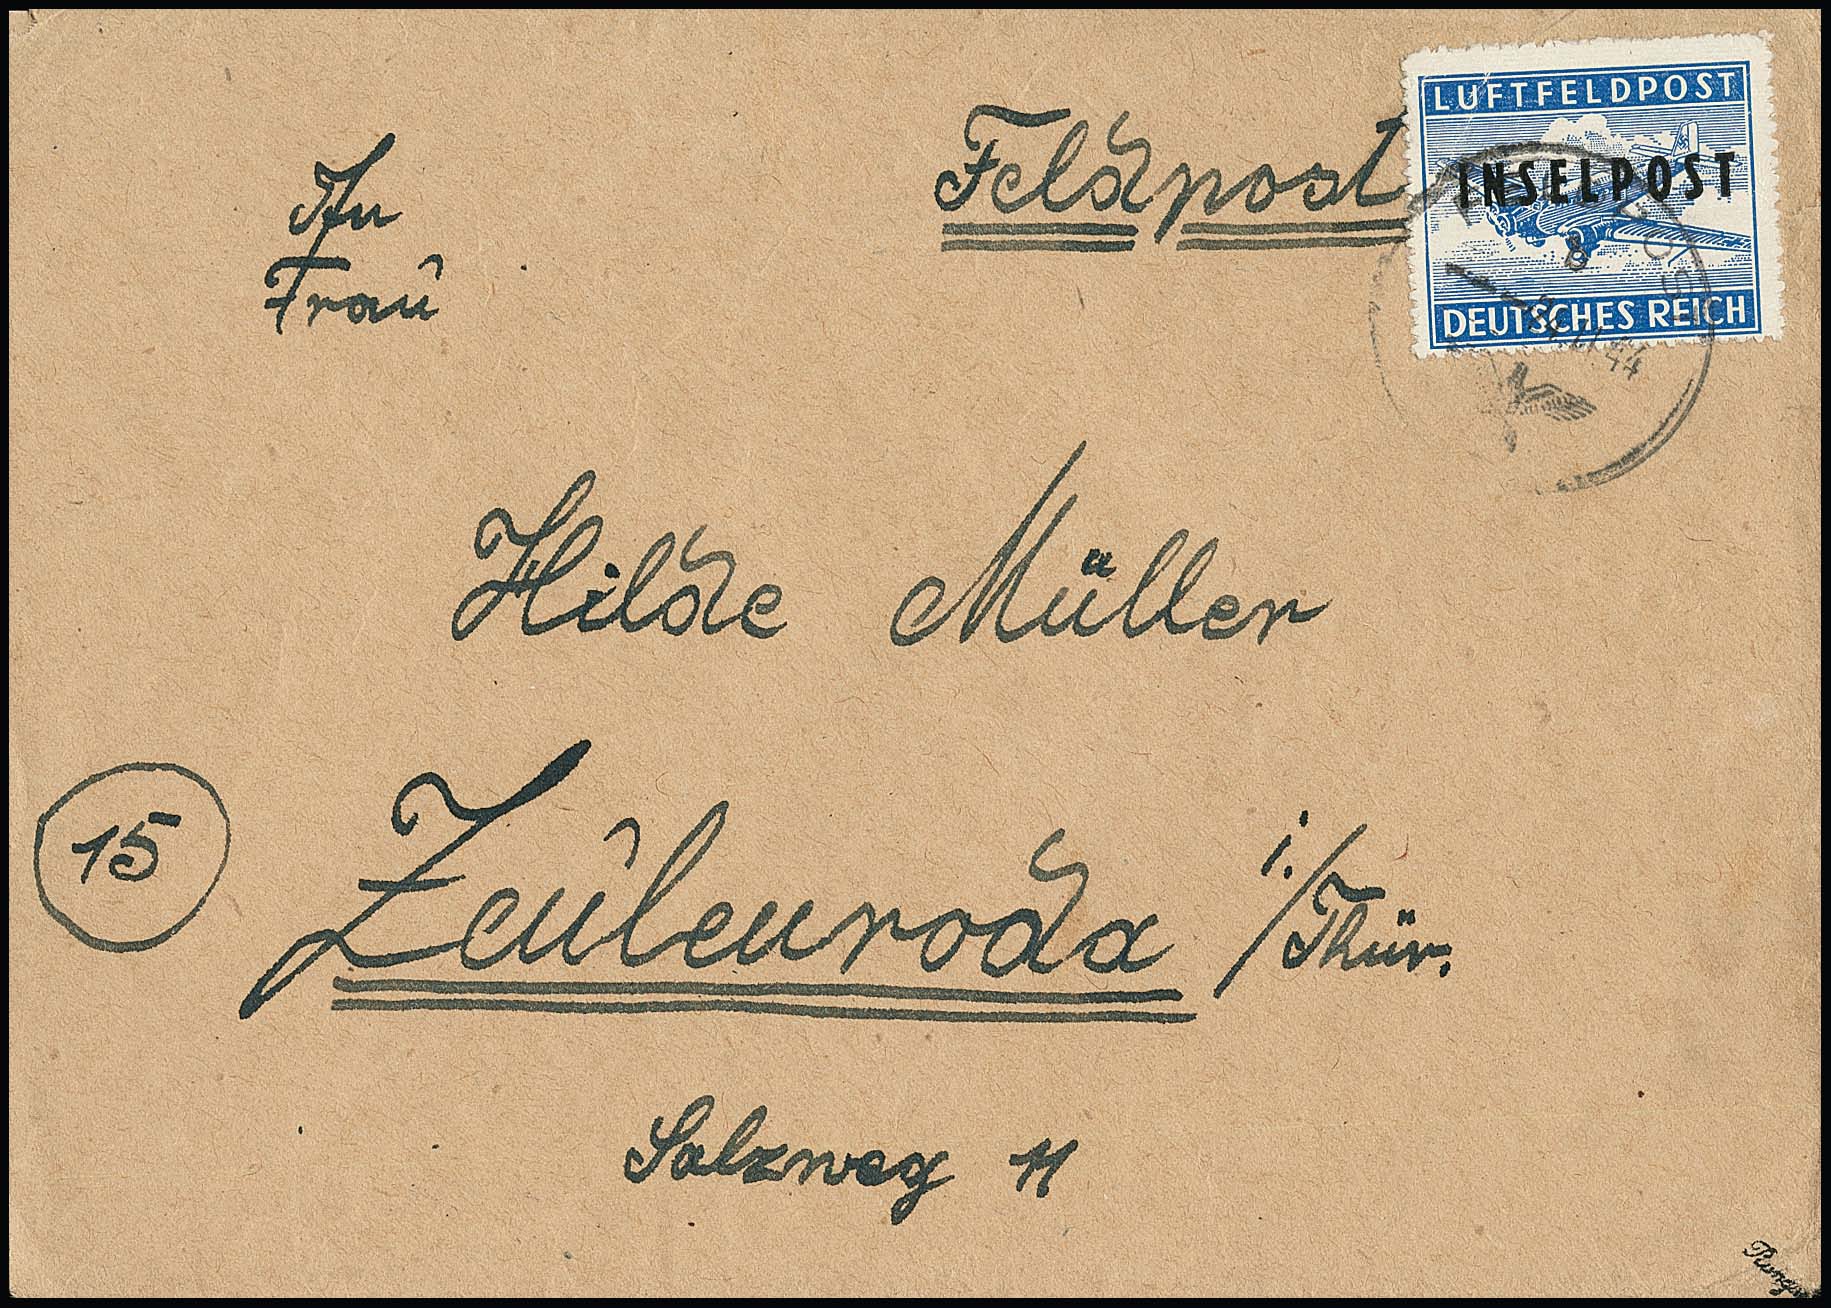 Feldpost
LUFTFELDPOST
INSELPOST
DEUTSCHES REICH
b
24.11.44
An
Frau
Hilde Müller
15
Zeulenroda i./Thür.
Salzweg 11